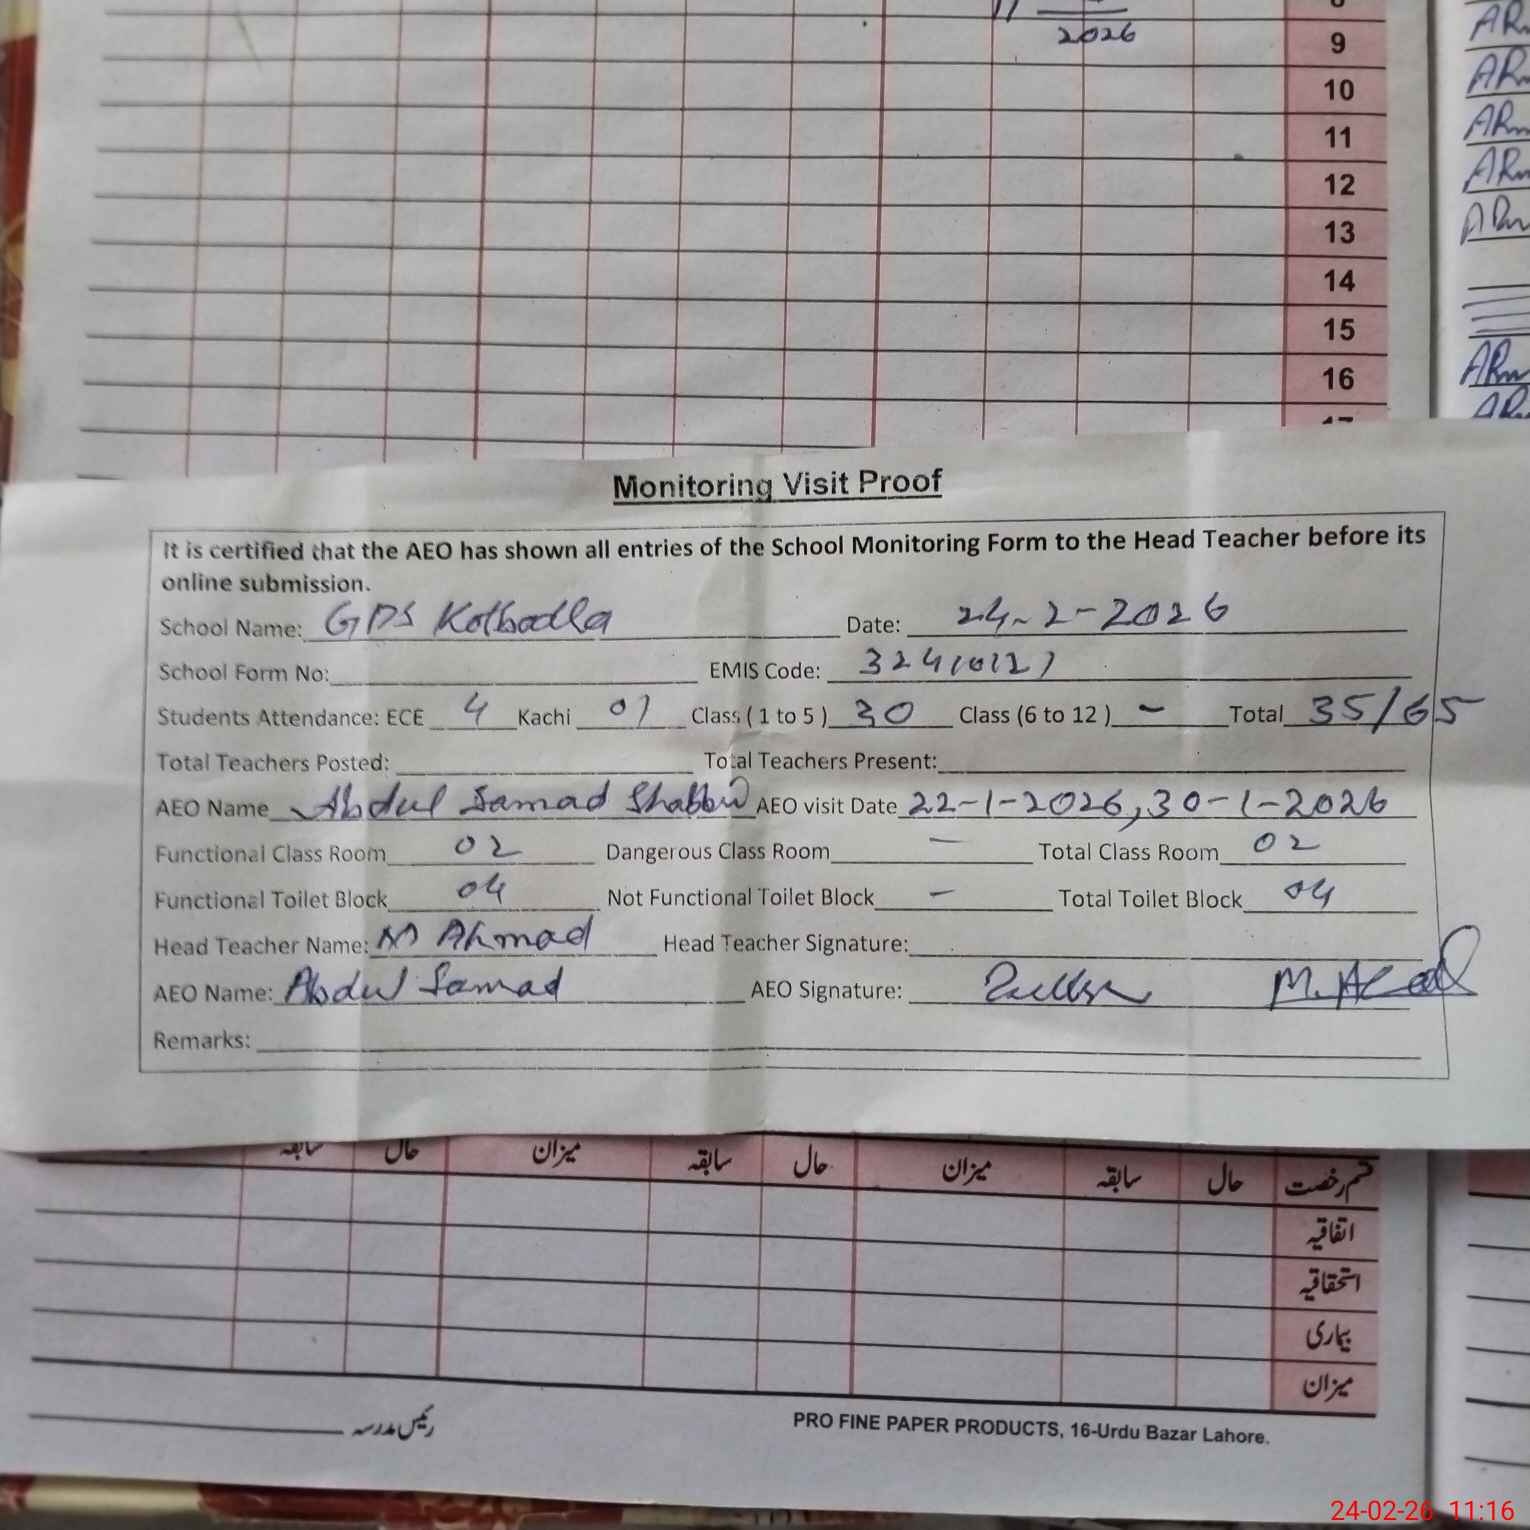 2026
9
10
11
12
13
14
15
16
Monitoring Visit Proof
It is certified that the AEO has shown all entries of the School Monitoring Form to the Head Teacher before its
online submission.
School Name: GPS Kotbadla Date: 24-2-2026
School Form No: EMIS Code: 32410127
Students Attendance: ECE 4 Kachi 01 Class ( 1 to 5 ) 30 Class (6 to 12 ) - Total 35/65
Total Teachers Posted: Total Teachers Present:
AEO Name Abdul Samad Shabbir AEO visit Date 22-1-2026, 30-1-2026
Functional Class Room 02 Dangerous Class Room - Total Class Room 02
Functional Toilet Block 04 Not Functional Toilet Block - Total Toilet Block 04
Head Teacher Name: M Ahmad Head Teacher Signature:
AEO Name: Abdul Samad AEO Signature:
Remarks:
قسم رخصت حال سابقہ میزان حال سابقہ میزان حال سابقہ
اتفاقیہ
استحقاقیہ
بیماری
میزان
رئیس مدرسہ
PRO FINE PAPER PRODUCTS, 16-Urdu Bazar Lahore.
24-02-26 11:16